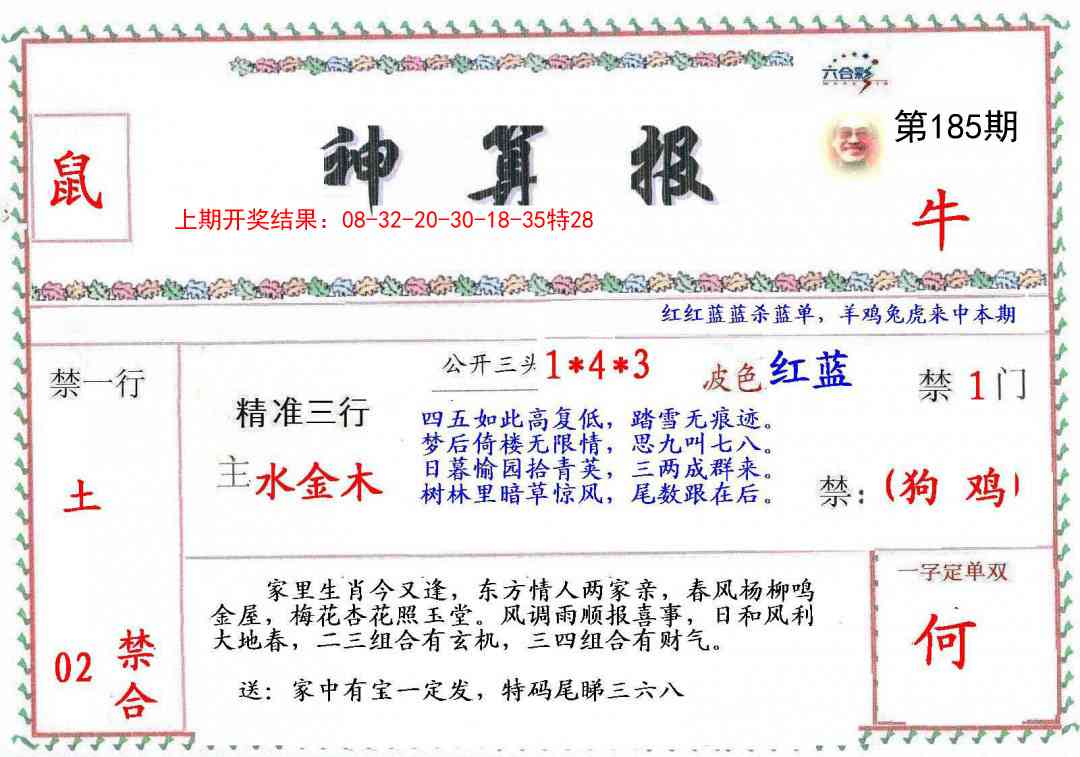 六合彩
第185期
鼠
神算报
牛
上期开奖结果：08-32-20-30-18-35特28
红红蓝蓝杀蓝单，羊鸡兔虎来中本期
禁一行
土
02
禁合
精准三行
主水金木
公开三头1*4*3
波色红蓝
四五如此高复低，踏雪无痕迹。
梦后倚楼无限情，思九叫七八。
日暮愉园拾青英，三两成群来。
树林里暗草惊风，尾数跟在后。
禁1门
禁：(狗 鸡)
家里生肖今又逢，东方情人两家亲，春风杨柳鸣
金屋，梅花杏花照玉堂。风调雨顺报喜事，日和风利
大地春，二三组合有玄机，三四组合有财气。
送：家中有宝一定发，特码尾睇三六八
一字定单双
何